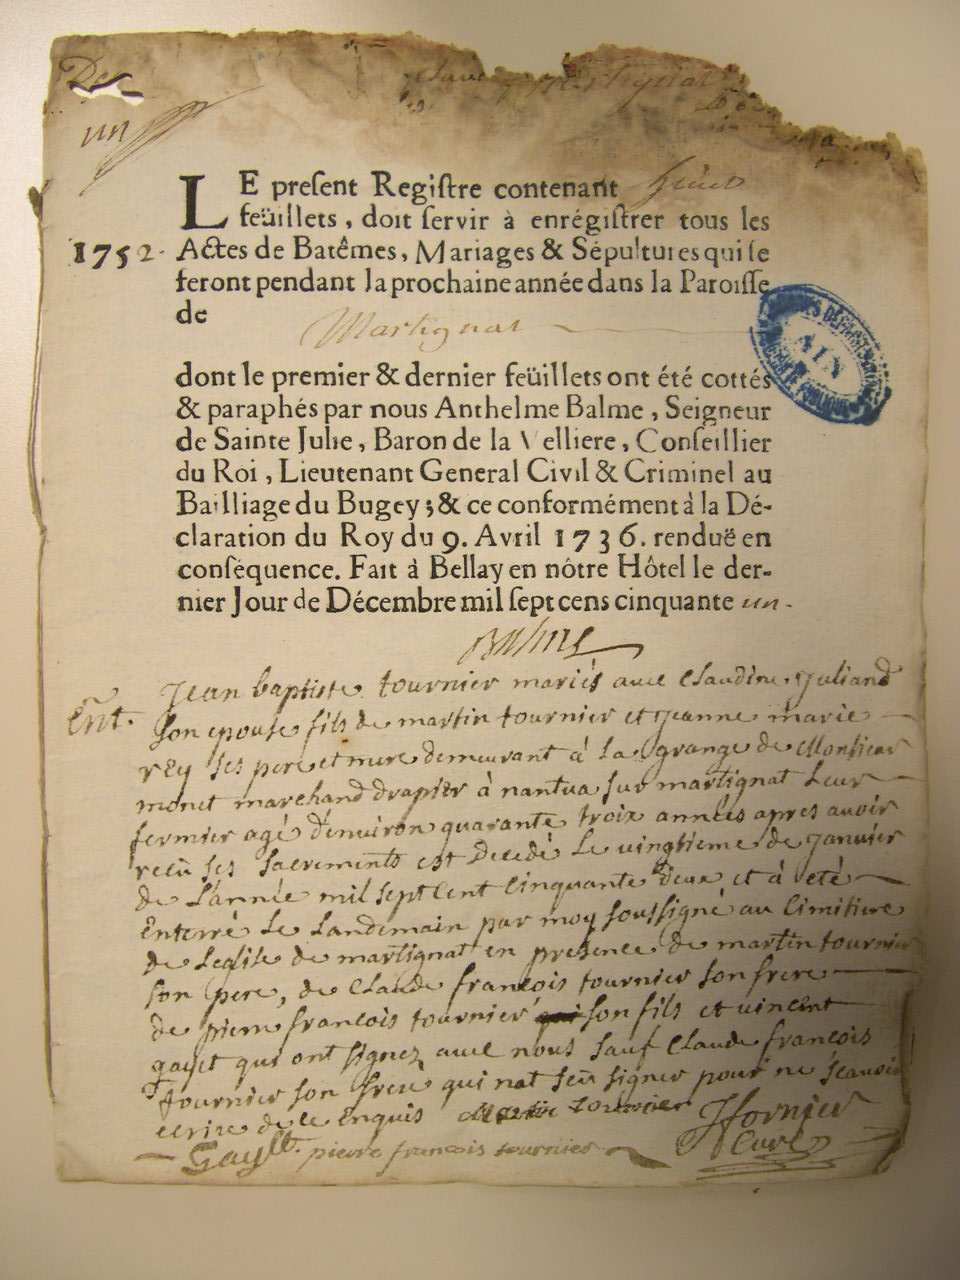 un
LE present Registre contenant huict
feüillets, doit servir à enrégistrer tous les
1752. Actes de Batêmes, Mariages & Sépultures qui se
feront pendant la prochaine année dans la Paroisse
de Martignat
dont le premier & dernier feüillets ont été cottés
& paraphés par nous Anthelme Balme, Seigneur
de Sainte Julie, Baron de la Velliere, Conseillier
du Roi, Lieutenant General Civil & Criminel au
Bailliage du Bugey; & ce conformément à la Dé-
claration du Roy du 9. Avril 1736. renduë en
conséquence. Fait à Bellay en nôtre Hôtel le der-
nier Jour de Décembre mil sept cens cinquante un.
Balme
Ent. Jean baptiste tournier mariés avec Claudine Juliand
son epouse fils de martin tournier et jeanne marie
rey ses pere et mere demeurant à la grange de Monsieur
monet marchand drapier à nantua sur martignat leur
fermier agé d'environ quarante troix années apres avoir
reçu ses sacrements est decedé le vingtieme de janvier
de l'année mil sept cent cinquante deux et à eté
enterré le landemain par moy soussigné au cimitiere
de leglise de martignat en presence de martin tournier
son pere, de claude françois tournier son frere
de pierre françois tournier son fils et vincent
gayet qui ont signez avec nous sauf claude françois
tournier son frere qui nat seu signer pour ne scavoir
ecrire de ce enquis martin tournier JFornier
Gayet. pierre francois tournier Curé
ARCHIVES DÉPARTEMENTALES
AIN